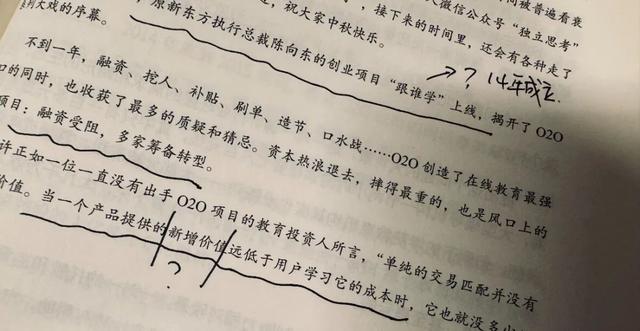 间被普遍看衰
大微信公众号“独立思考”
，接下来的时间里，还会有各种走了
，祝大家中秋快乐。
系列大戏的序幕。
原新东方执行总裁陈向东的创业项目“跟谁学”上线，揭开了O2O
→？14年成立.
不到一年，融资、挖人、补贴、刷单、造节、口水战……O2O创造了在线教育最强
口的同时，也收获了最多的质疑和猜忌。资本热浪退去，摔得最重的，也是风口上的
项目：融资受阻，多家筹备转型。
许正如一位一直没有出手O2O项目的教育投资人所言，“单纯的交易匹配并没有
价值。当一个产品提供的新增价值远低于用户学习它的成本时，它也就没多
？